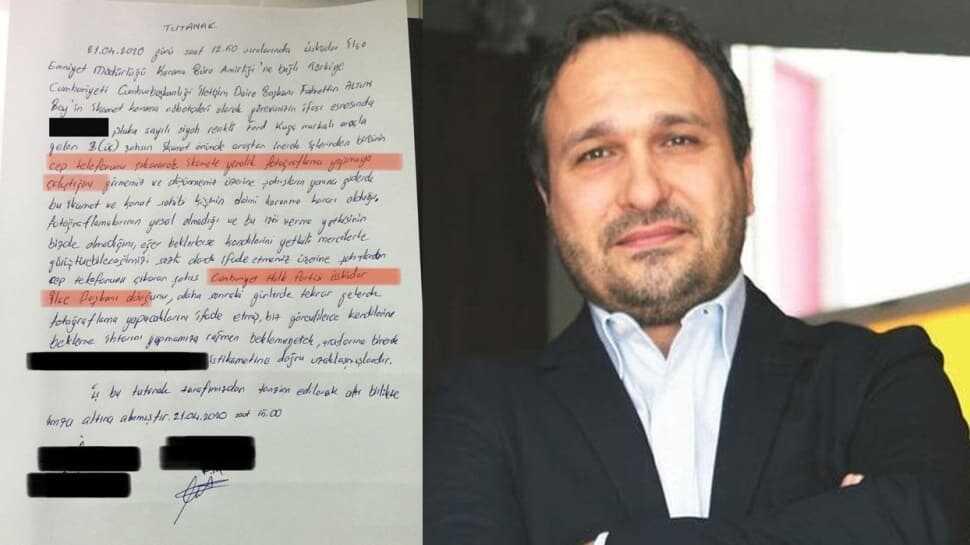 TUTANAK
21.04.2020 günü saat 12.50 sıralarında Üsküdar İlçe
Emniyet Müdürlüğü Koruma Büro Amirliği'ne bağlı Türkiye
Cumhuriyeti Cumhurbaşkanlığı İletişim Daire Başkanı Fahrettin ALTUN
Bey'in ikamet koruma nöbetçileri olarak görevimizin ifası esnasında
plaka sayılı siyah renkli Ford Kuga markalı araçla
gelen 3(üç) şahsın ikamet önünde araçtan inerek içlerinden birisinin
cep telefonunu çıkararak ikamete yönelik fotoğraflama yapmaya
çalıştığını görmemiz ve üzerine şahısların yanına giderek
bu ikamet ve konut sahibi kişinin daimi koruma kararı olduğu,
fotoğraflamalarının yasal olmadığı ve bu izni verme yetkisinin
bizde olmadığını, eğer beklerlerse kendilerini yetkili mercilerle
görüştürebileceğimizi sözlü olarak ifade etmemiz üzerine şahıslardan
cep telefonunu çıkaran şahıs Cumhuriyet Halk Partisi Üsküdar
İlçe Başkanı olduğunu, daha sonraki günlerde tekrar gelerek
fotoğraflama yapacaklarını ifade etmiş, biz görevlilerce kendilerine
bekleme ihtarı yapmamıza rağmen beklemeyerek, araçlarına binerek
istikametine doğru uzaklaşmışlardır.
İş bu tutanak tarafımızdan tanzim edilerek altı birlikte
imza altına alınmıştır. 21.04.2020 saat 15.00